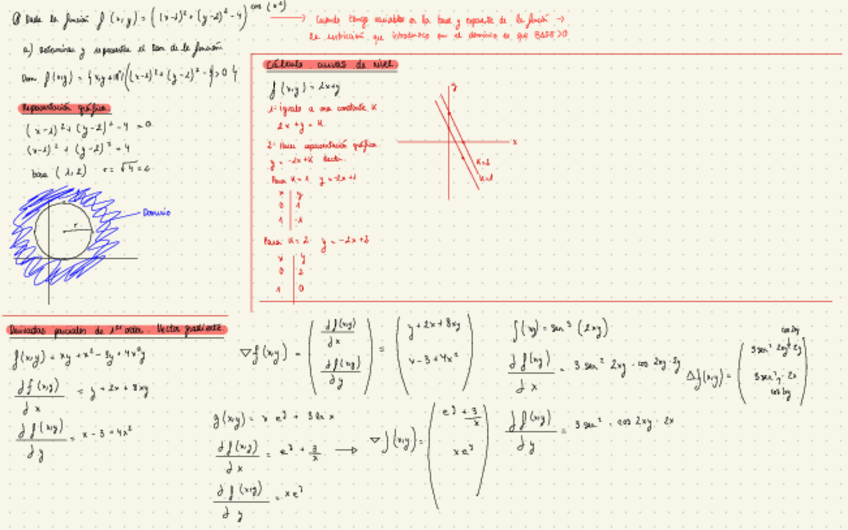 Dada la función f(x,y) = ((x-1)² + (y-2)² - 4)^cos(x²)
Cuando tengo variables en la base y exponente de la función →
la restricción que introduzco en el dominio es que BASE > 0
a) Determinar y representar el Dom de la función.
Dom f(x,y) = {x,y ((x-1)² + (y-2)² - 4) > 0}
Representación gráfica
(x-1)² + (y-2)² - 4 = 0
(x-1)² + (y-2)² = 4
(1,2) r = √4 = 2
r
Dominio
Cálculo curvas de nivel
f(x,y) = 2x+y
1º Igualo a una constante K
2x + y = K
2º Hacer representación gráfica
y = -2x+K Recta.
Para K=1 y = -2x+1
x y
0 1
1 -1
Para K=2 y = -2x+2
x y
0 2
1 0
y
x
K=2
K=1
Derivadas parciales de 1er orden. Vector gradiente
f(x,y) = xy + x² - 3y + 4x²y
df(x,y)/dx = y + 2x + 8xy
df(x,y)/dy = x - 3 + 4x²
∇f(x,y) = (df(x,y)/dx df(x,y)/dy) = (y+2x+8xy x-3+4x²)
g(x,y) = x e^y + 3 ln x
df(x,y)/dx = e^y + 3/x → ∇f(x,y) = (e^y + 3/x xe^y)
df(x,y)/dy = xe^y
f(xy) = sen³ (2xy)
df(xy)/dx = 3 sen² 2xy · cos 2xy · 2y
df(x,y)/dy = 3 sen² · cos 2xy · 2x